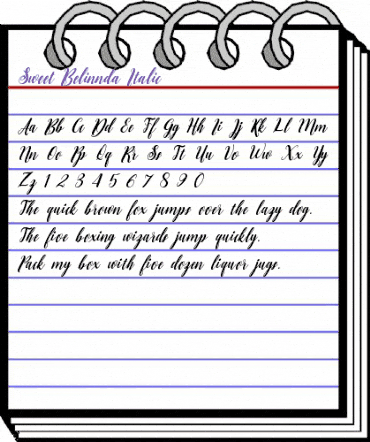 Sweet Belinnda Italic
Aa Bb Cc Dd Ee Ff Gg Hh Ii Jj Kk Ll Mm
Nn Oo Pp Qq Rr Ss Tt Uu Vv Ww Xx Yy
Zz 1 2 3 4 5 6 7 8 9 0
The quick brown fox jumps over the lazy dog.
The five boxing wizards jump quickly.
Pack my box with five dozen liquor jugs.